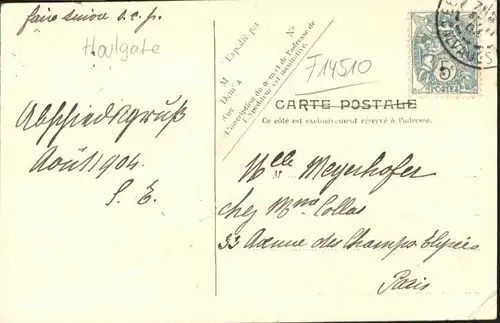 faire suivre s.v.p.
Houlgate
Abschiedsgruß
Août 1904.
S. E.
M
Expédié par
Demt à
Rue
L'inscription du nom et de l'adresse de
l'Expéditeur est facultative.
F14510
5
POSTES
CALVADOS
CARTE POSTALE
Ce côté est exclusivement réservé à l'adresse.
Mlle Meyerhofer
chez Mme Collas
33 Avenue des Champs Elysées
Paris